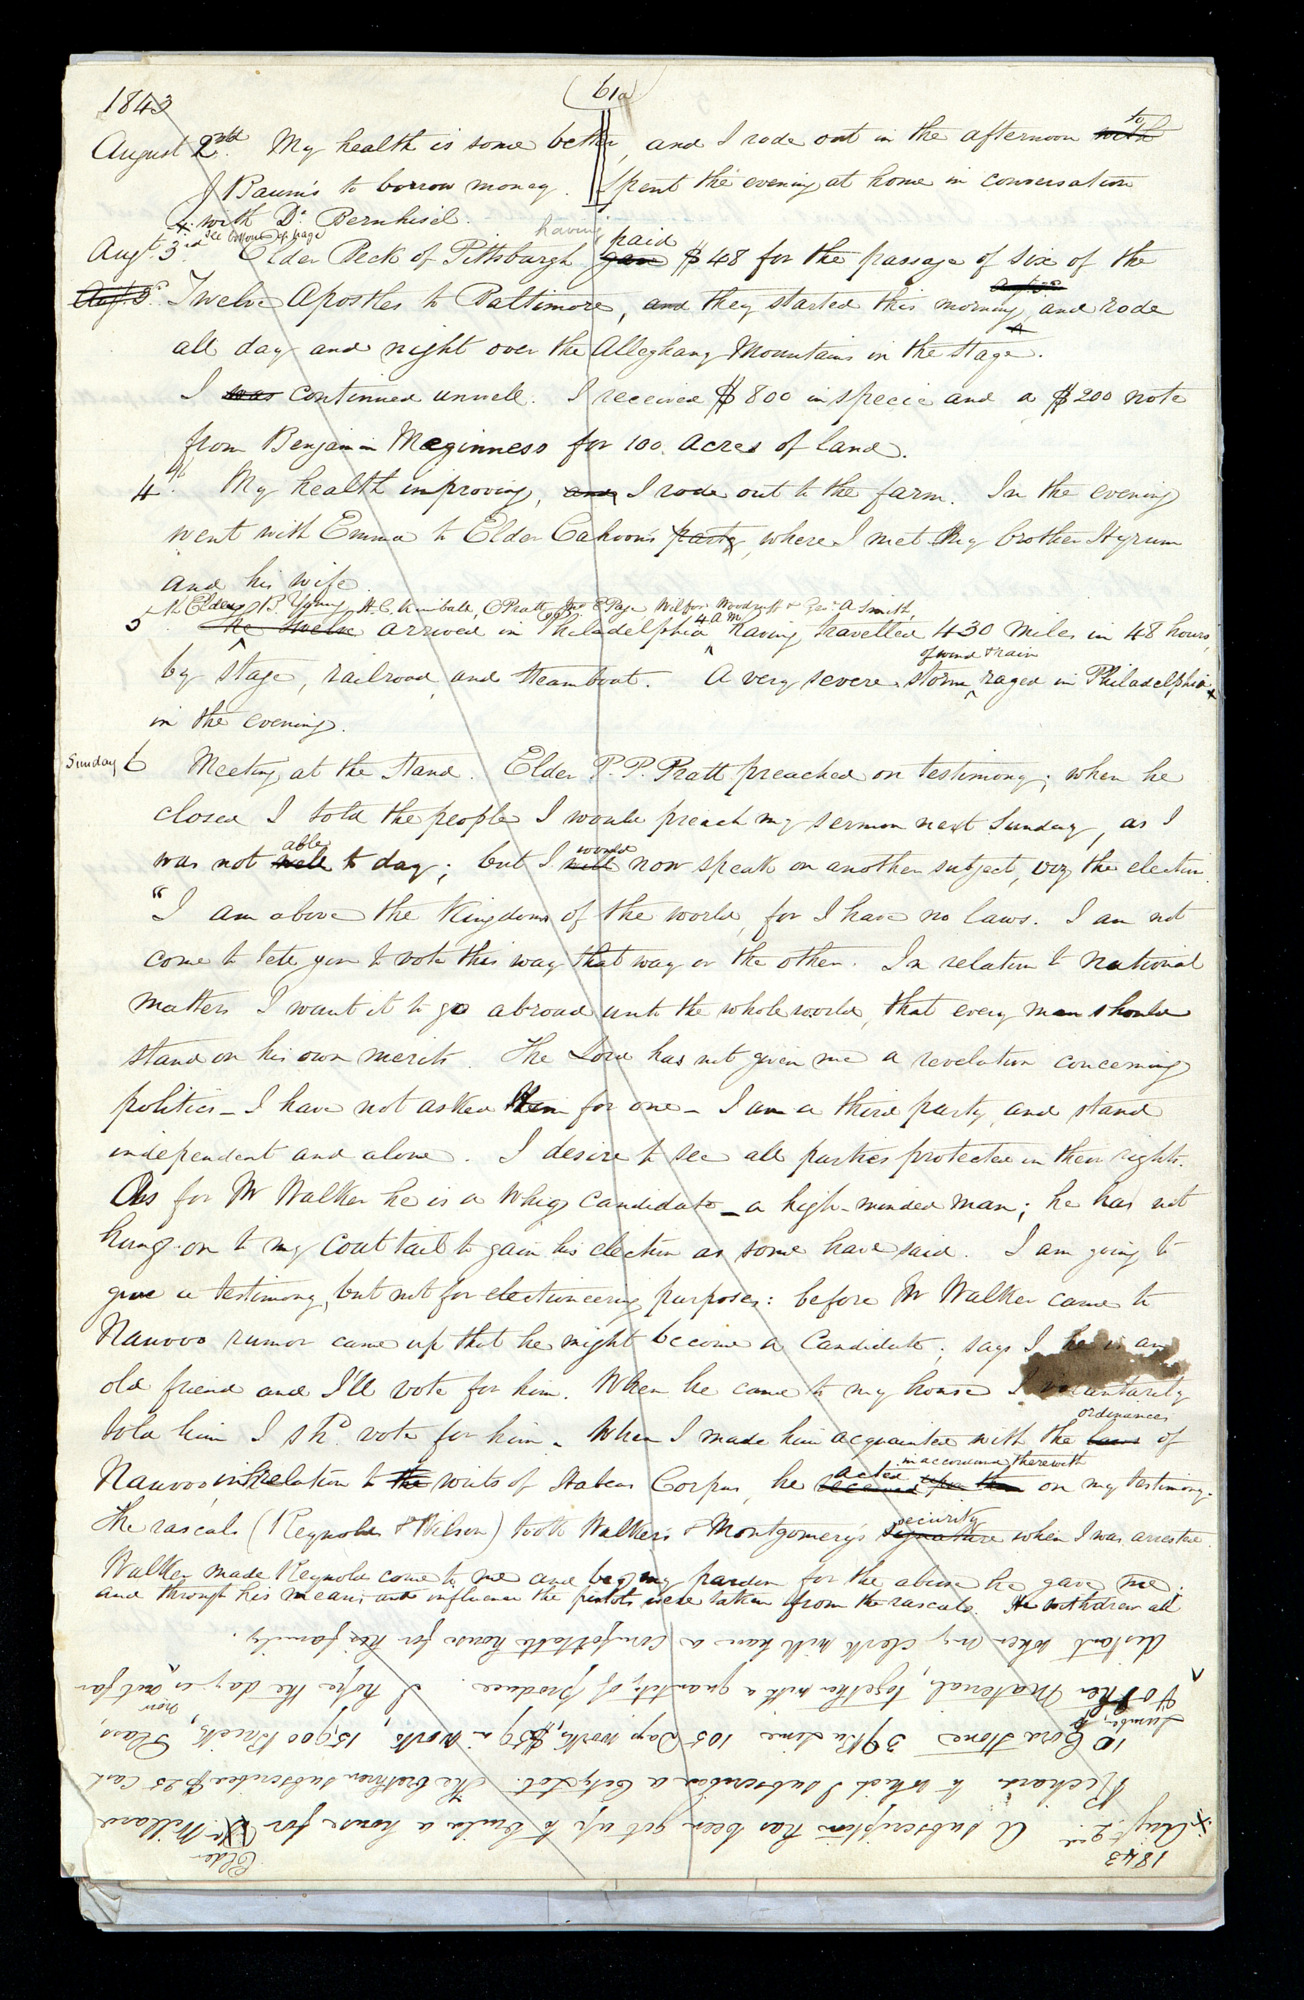 1843
61a
August 2nd. My health is some better, and I rode out in the afternoon with to
J Baum's to borrow money. Spent the evening at home in conversation
x with Dr. Bernhisel.
see bottom of page having paid
Augt. 3rd Elder Peck of Pittsburgh gave $48 for the passage of six of the
Augt. 3d. Twelve Apostles to Baltimore, and they started this morning, and rode
all day and night over the Alleghany Mountains in the stage.
I was continued unwell. I received $800 in specie and a $200 note
from Benjamin Meginness for 100 acres of land.
4th. My health improving, and I rode out to the farm. In the evening
went with Emma to Elder Cahoon's party, where I met my brother Hyrum
and his wife.
Elders B. Young, H. C. Kimball, O Pratt, Jno E Page Wilford Woodruff & Geo. A Smith, 4 A M
5th. The Twelve arrived in Philadelphia, having travelled 430 miles in 48 hours,
of wind & rain
by stage, railroad, and steam boat. A very severe storm raged in Philadelphia x
in the evening.
Sunday 6 Meeting at the Stand. Elder P. P. Pratt preached on testimony; when he
closed I told the people I would preach my sermon next Sunday, as I
able would
was not well to day; but I will now speak on another subject, viz the election.
"I am above the kingdoms of the world, for I have no laws. I am not
come to tell you to vote this way that way or the other. In relation to national
matters I want it to go abroad unto the whole world, that every man should
stand on his own merits. The Lord has not given me a revelation concerning
politics – I have not asked him for one – I am a third party, and stand
independent and alone. I desire to see all parties protected in their rights.
As for Mr Walker he is a Whig candidate – a high-minded man; he has not
hung on to my coat tail to gain his election as some have said. I am going to
give a testimony, but not for electioneering purposes: before Mr Walker came to
Nauvoo rumor came up that he might become a Candidate; says I he is an
old friend and I'll vote for him. When he came to my house I voluntarily
ordinances
told him I shd. vote for him. When I made him acquainted with the laws of
acted in accordance therewith
Nauvoo, in relation to the writs of Habeas Corpus, he received upon them on my testimony.
security
The rascals (Reynolds & Wilson) took Walker's & Montgomery's signature when I was arrested.
Walker made Reynolds come to me and beg my pardon for the abuse he gave me
and through his means and influence the pistols were taken from the rascals. He withdrew all
1843 Elder
x Augt. 2nd. A subscription has been got up to build a house for Dr. Willard
Richards to which I subscribed a City Lot. The brethren subscribed $25 Cash
10 Cord Stone 39 Bu Lime 105 Day works, $59 in work, 15,900 Bricks, Glass,
Lumber, & now
& other Material, together with a quantity of produce. I hope the day is not far
distant when my clerk will have a comfortable house for his family.